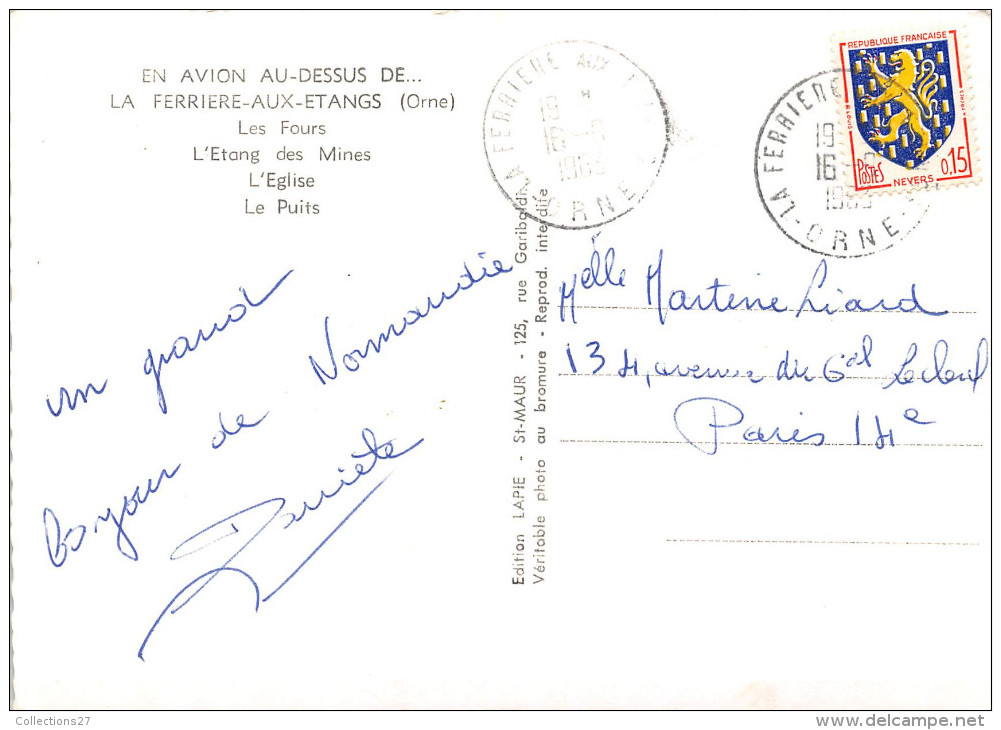 EN AVION AU-DESSUS DE...
LA FERRIERE-AUX-ETANGS (Orne)
Les Fours
L'Etang des Mines
L'Eglise
Le Puits
un grand
bonjour de Normandie
Danièle
Edition LAPIE - St-MAUR - 125, rue Garibaldi
Véritable photo au bromure - Reprod. interdite
LA FERRIERE AUX
19 *
16
1965
ORNE
LA FERRIERE
19
16
ORNE
REPUBLIQUE FRANÇAISE
POSTES
NEVERS
0,15
Melle Martine Liard
134, avenue du Gal Leclerc
Paris 14e
Collections27
www.delcampe.net